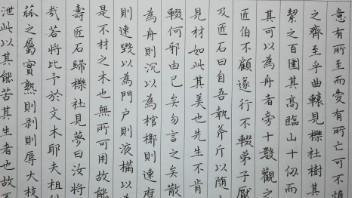 意有所至而愛有所亡可
之齊至乎曲轅見櫟社樹其
絜之百圍其高臨山十仞而
其可以為舟者旁十數觀之
匠伯不顧遂行不輟弟子厭
及匠石曰自吾執斧斤以隨
見材如此其美也先生不肯
輟何邪曰已矣勿言之矣散
為舟則沉以為棺槨則速腐
則速毀以為門戶則液樠以
是不材之木也無所可用故
壽匠石歸櫟社見夢曰汝將
哉若將比予於文木邪夫柤
蓏之屬實熟則剝則辱大枝
泄此以其能苦其生者也故